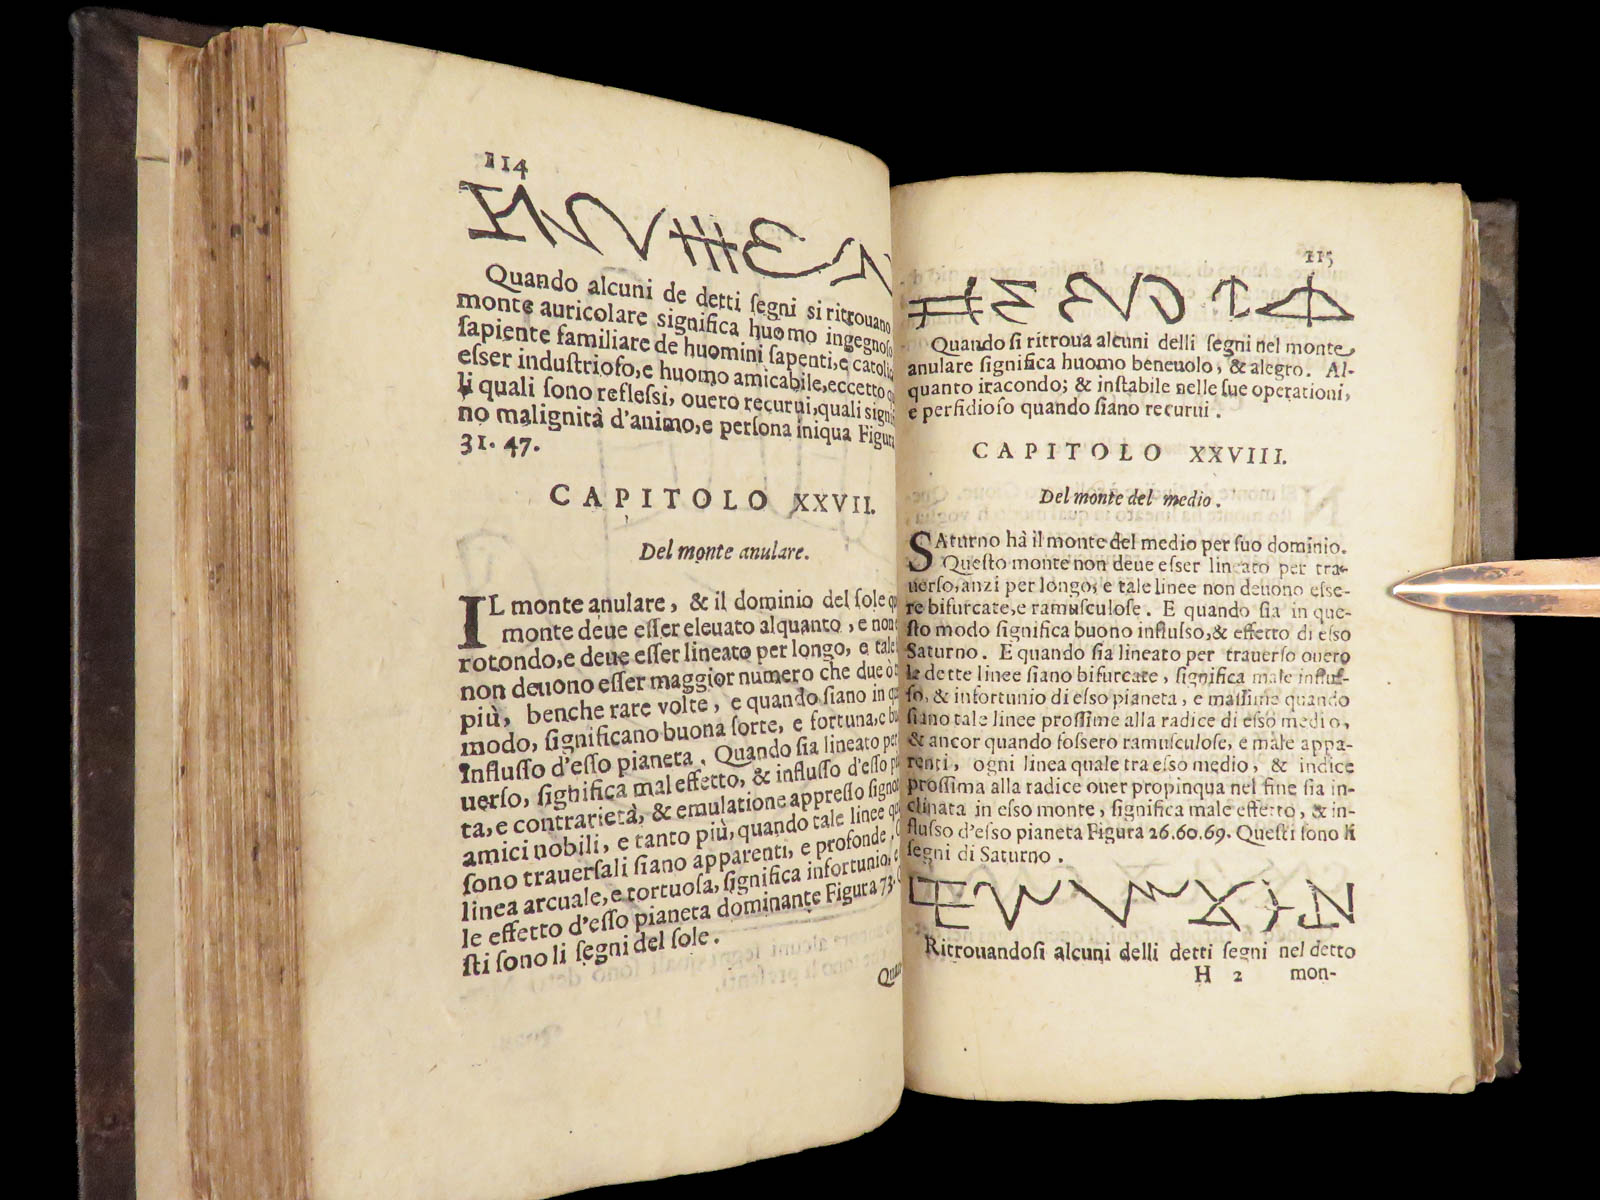 114
Quando alcuni de detti ſegni si ritrouano
monte auricolare significa huomo ingegnoſo
ſapiente familiare de huomini ſapenti, e catoli
eſser induſtrioſo, e huomo amicabile, eccetto q
li quali ſono refleſsi, ouero recurui, quali signi
no malignità d'animo, e perſona iniqua Figura
31. 47.
CAPITOLO XXVII.
Del monte anulare.
IL monte anulare, & il dominio del ſole qu
monte deue eſſer eleuato alquanto, e non
rotondo, e deue eſſer lineato per longo, e tale
non deuono eſſer maggior numero che due ò
più, benche rare volte, e quando ſiano in qu
modo, ſignificano buona ſorte, e fortuna, e bu
influſſo d'eſſo pianeta. Quando ſia lineato per
uerſo, ſignifica mal effetto, & influſſo d'eſſo pi
ta, e contrarietà, & emulatione appreſſo ſigno
amici nobili, e tanto più, quando tale linee qu
ſono trauerſali ſiano apparenti, e profonde,
linea arcuale, e tortuoſa, ſignifica infortunio, e
le effetto d'eſſo pianeta dominante Figura 73.
ſti ſono li ſegni del ſole.
Quan
115
Quando ſi ritroua alcuni delli ſegni nel monte
anulare significa huomo beneuolo, & alegro. Al-
quanto iracondo; & inſtabile nelle ſue operationi,
e perfidioſo quando ſiano recurui.
CAPITOLO XXVIII.
Del monte del medio.
SAturno hà il monte del medio per ſuo dominio.
Queſto monte non deue eſser lineato per tra-
uerſo, anzi per longo, e tale linee non deuono eſse-
re bifurcate, e ramuſculoſe. E quando ſia in que-
ſto modo ſignifica buono influſso, & effetto di eſso
Saturno. E quando ſia lineato per trauerſo ouero
le dette linee ſiano bifurcate, ſignifica male influſ-
ſo, & infortunio di eſso pianeta, e maſſime quando
ſiano tale linee proſſime alla radice di eſso medio,
& ancor quando foſsero ramuſculoſe, e male appa-
renti, ogni linea quale tra eſso medio, & indice
proſſima alla radice ouer propinqua nel fine ſia in-
clinata in eſso monte, ſignifica male effetto, & in-
fluſso d'eſso pianeta Figura 26. 60. 69. Queſti ſono li
ſegni di Saturno.
Ritrouandoſi alcuni delli detti ſegni nel detto
H 2 mon-